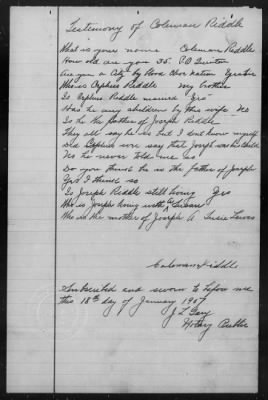 Testimony of Coleman Riddle
What is your name Coleman Riddle
How old are you 35. P.O. Quinton
Are you a City by blood Choc nation Yes Sir
Who is Orphius Riddle My brother
Is Orphius Riddle married Yes
Has he any children by this wife No
Is he the father of Joseph Riddle
They all say he is but I dont know myself
Did Orphius ever say that Joseph was his child
No he never told me so
Do you think he is the father of Joseph
Yes I think so
Is Joseph Riddle still living Yes
Who is Joseph living with,
Who is the mother of Joseph A Susie Lewis
Coleman Riddle
Subscribed and sworn to before me
this 18th day of January 1907
Notary Public